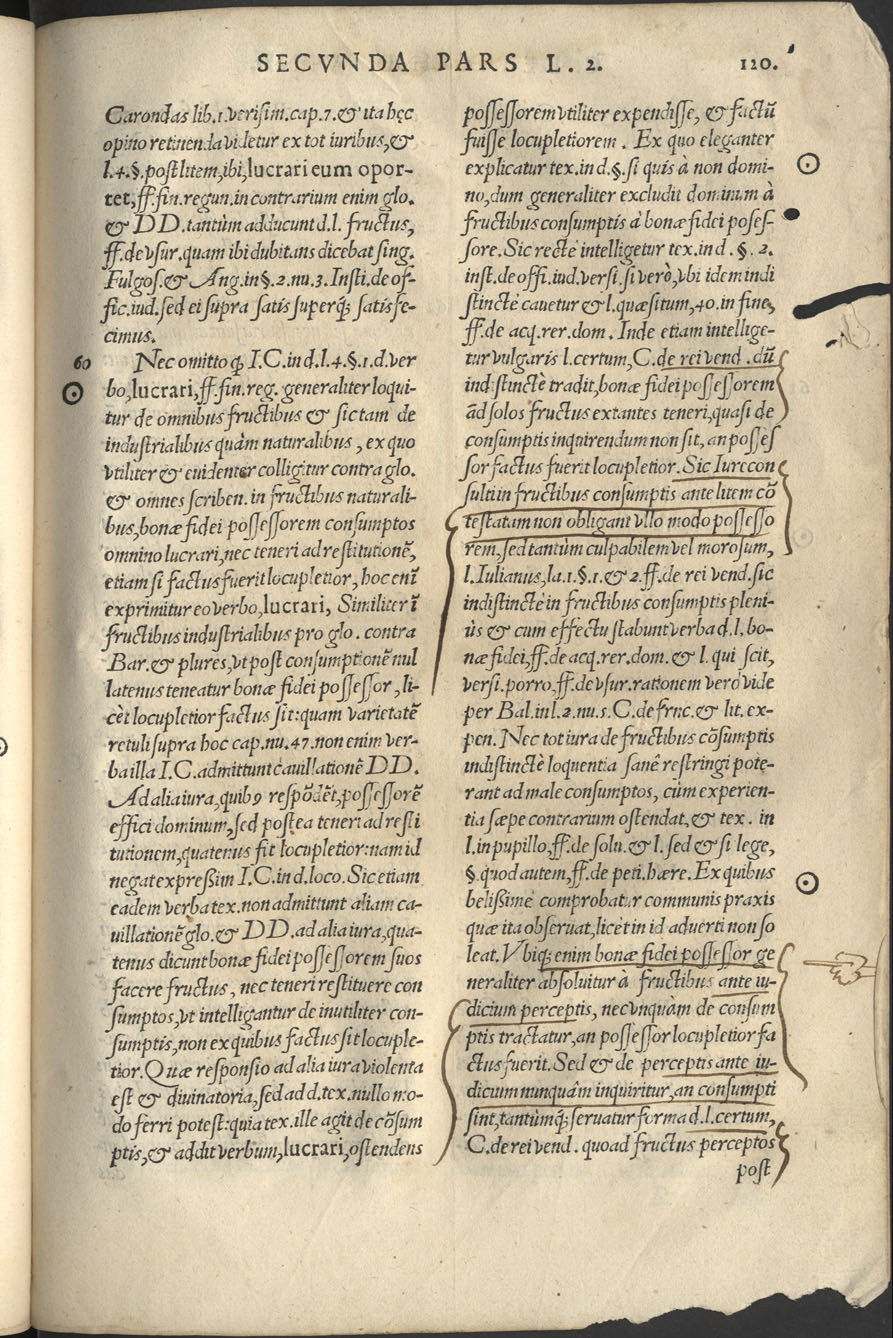 SECVNDA PARS L. 2. 120.
Carondas lib.1.verisim.cap.7.& ita hęc
opino retinenda videtur ex tot iuribus, &
l.4.§.post litem, ibi, lucrari eum opor-
tet, ff. fin. regun. in contrarium enim glo.
& DD. tantùm adducunt d. l. fructus,
ff. de vsur. quam ibi dubitans dicebat sing.
Fulgos. & Ang. in §.2.nu.3. Insti. de of-
fic. iud. sed ei supra satis superq́; satis fe-
cimus.
60 Nec omitto q̃ I.C. in d.l.4.§.1.d.ver
bo, lucrari, ff. fin. reg. generaliter loqui-
tur de omnibus fructibus & sic tam de
industrialibus quàm naturalibus, ex quo
vtiliter & euidenter colligitur contra glo.
& omnes scriben. in fructibus naturali-
bus, bonæ fidei possessorem consumptos
omnino lucrari, nec teneri ad restitutionẽ,
etiam si factus fuerit locupletior, hoc enĩ
exprimitur eo verbo, lucrari, Similiter ĩ
fructibus industrialibus pro glo. contra
Bar. & plures, vt post consumptionẽ nul
latenus teneatur bonæ fidei possessor, li-
cèt locupletior factus sit: quam varietatẽ
retuli supra hoc cap. nu. 47. non enim ver-
ba illa I.C. admittunt cauillationẽ DD.
Ad alia iura, quibꝰ respõdẽt, possessorẽ
effici dominum, sed postea teneri ad resti
tutionem, quatenus fit locupletior: nam id
negat expreßim I.C. in d. loco. Sic etiam
eadem verba tex. non admittunt aliam ca-
uillationẽ glo. & DD. ad alia iura, qua-
tenus dicunt bonæ fidei possessorem suos
facere fructus, nec teneri restituere con
sumptos, vt intelligantur de inutiliter con-
sumptis, non ex quibus factus sit locuple-
tior. Quæ responsio ad alia iura violenta
est & diuinatoria, sed ad d. tex. nullo mo-
do ferri potest: quia tex. ille agit de cõsum
ptis, & addit verbum, lucrari, ostendens
possessorem vtiliter expendisse, & factũ
fuisse locupletiorem. Ex quo eleganter
explicatur tex. in d.§. si quis à non domi-
no, dum generaliter excludit dominum à
fructibus consumptis à bonæ fidei poses-
sore. Sic rectè intelligetur tex. in d. §. 2.
inst. de offi. iud. versi. si verò, vbi idem indi
stinctè cauetur & l. quæsitum, 40. in fine,
ff. de acq. rer. dom. Inde etiam intellige-
tur vulgaris l. certum, C. de rei vend. dũ
indistinctè tradit, bonæ fidei possessorem
ãd solos fructus extantes teneri, quasi de
consumptis inquirendum non sit, an posses
sor factus fuerit locupletior. Sic Iurecon
sulti in fructibus consumptis ante litem cõ
testatam non obligant vllo modo possesso
rem, sed tantùm culpabilem vel morosum,
l. Iulianus, la.1.§.1.& 2. ff. de rei vend. sic
indistinctè in fructibus consumptis pleni-
ùs & cum effectu stabunt verba d. l. bo-
næ fidei, ff. de acq. rer. dom. & l. qui scit,
versi. porro, ff. de vsur. rationem verò vide
per Bal. in l. 2. nu. 5. C. de frnc. & lit. ex-
pen. Nec tot iura de fructibus cõsumptis
indistinctè loquentia sanè restringi pote-
rant ad male consumptos, cùm experien-
tia sæpe contrarium ostendat, & tex. in
l. in pupillo, ff. de solu. & l. sed & si lege,
§. quod autem, ff. de peti. hære. Ex quibus
belißimè comprobatur communis praxis
quæ ita obseruat, licet in id aduerti non so
leat. Vbiq; enim bonæ fidei possessor ge
neraliter absoluitur à fructibus ante iu-
dicium perceptis, nec vnquàm de consum
ptis tractatur, an possessor locupletior fa
ctus fuerit. Sed & de perceptis ante iu-
dicium nunquâm inquiritur, an consumpti
sint, tantùmq; seruatur forma d. l. certum,
C. de rei vend. quoad fructus perceptos
post